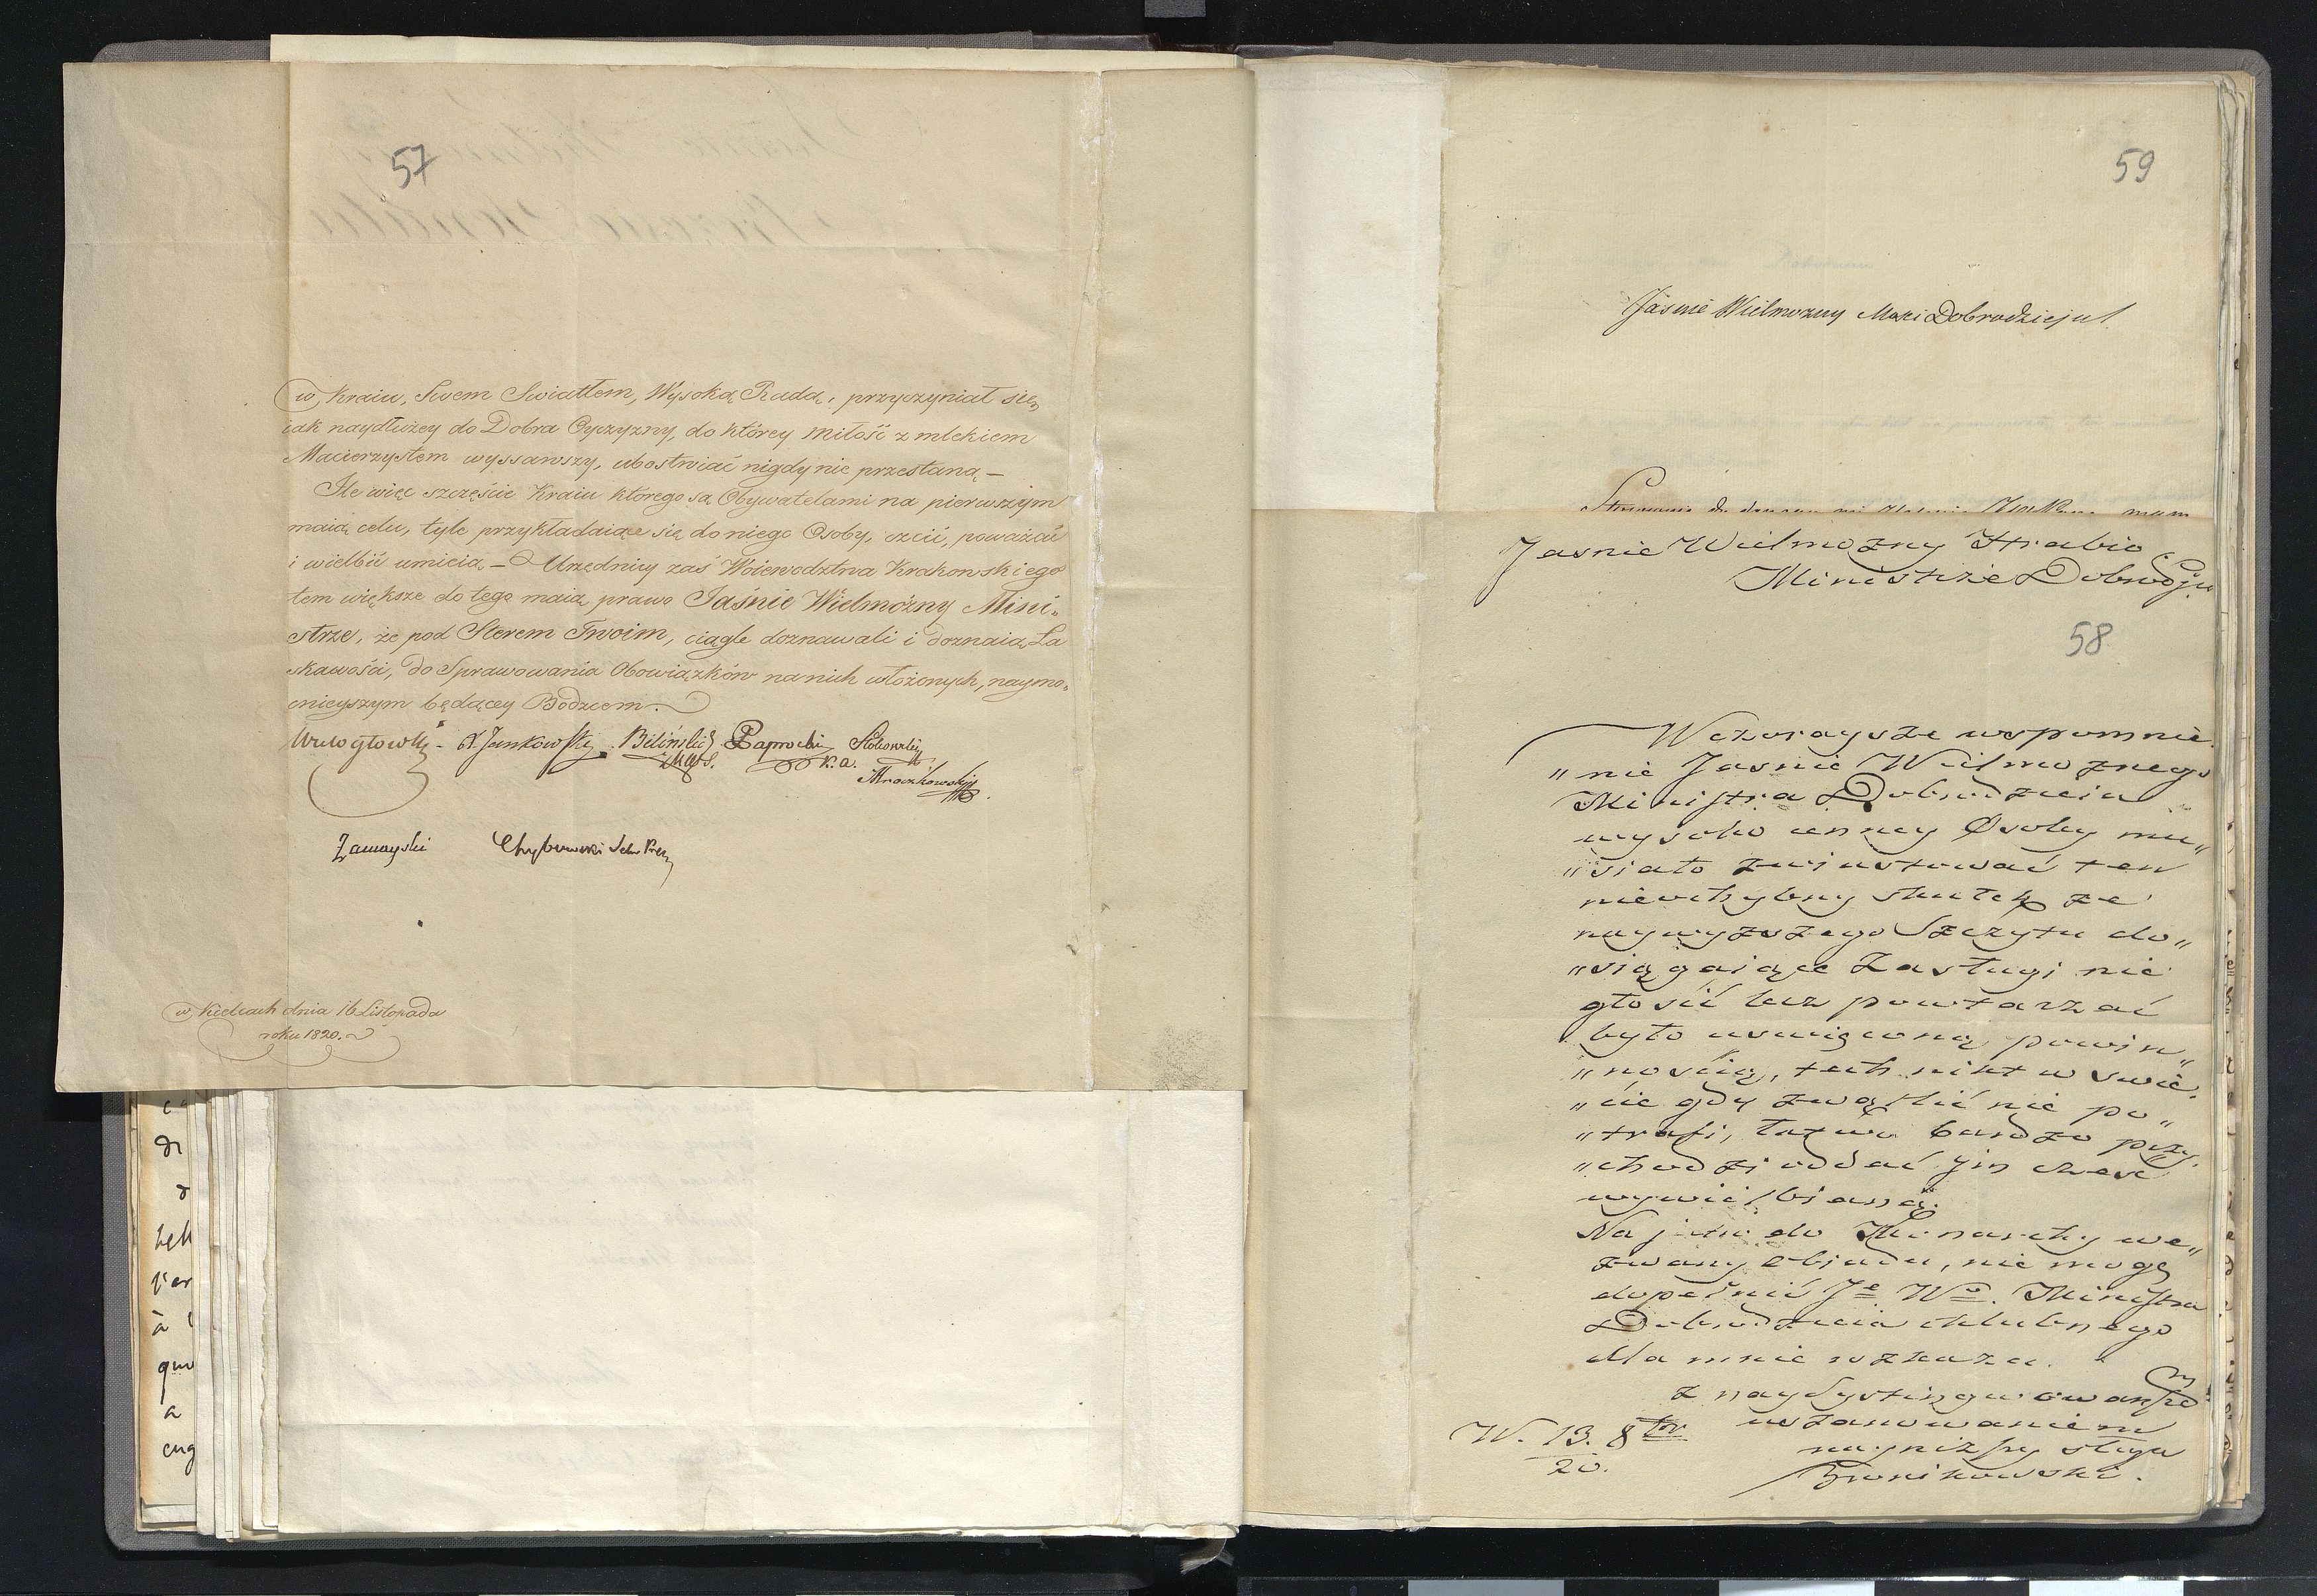 57
w, Kraiu, Swem Swiatłem, Wysoką Radą, przyczyniał się,
iak naydłużey do Dobra Oyczyzny, do którey miłość z mlekiem
Macierzystem wyssawszy, ubostwiać nigdy nie przestaną –
Ile więc szczęście Kraiu którego są Obywatelami na pierwszym
maią celu, tyle przykładaiące się do niego Osoby, czcić, poważać
i wielbić umieią, – Urzędnicy zaś Woiewodztwa Krakowskiego
tem większe do tego maią prawo Jaśnie Wielmożny Mini-
strze, że pod Sterem Twoim, ciągle doznawali i doznaią Ła
skawości, do Sprawowania Obowiązków na nich włożonych, naymo-
cnieyszym będącey Bodzcem.
Wielogłowski A. Jankowski Biliński Paprocki
K.a.
Mroczkowski
Zamoyski Chybowski
w, Kielcach dnia 16 Listopada
roku 1820.
59
Jasnie Wielmozny Mosci Dobrodzieju!
Stosownie do danego mi mam
Jasnie Wielmozny Hrabio
Ministrze Dobrodzju
58
Wczoraysze wspomnie
"nie Jasnie Wielmoznego
Ministra Dobrodzieia
wysoko cenney Osoby mu"
"siało ten
niechybny skutek ze
naywyzszego Szczytu do"
"siągaiące Zasługi nie
głosić lecz powtarzać
było powin"
"nością, tych nikt w swie"
"cie gdy zwątlić nie po"
"trafi, łatwo bardzo przy"
"chodzi oddać im czesc
Na jutro do we"
zwany Obiadu, nie mogę
dopełnić Je Wo. Ministra
Dobrodzieia chlubnego
dla mnie rozkazu.
z naydystyngwowanszem
uszanowaniem
nayniższy sługa
Bronikowski.
W. 13. 8br
20.